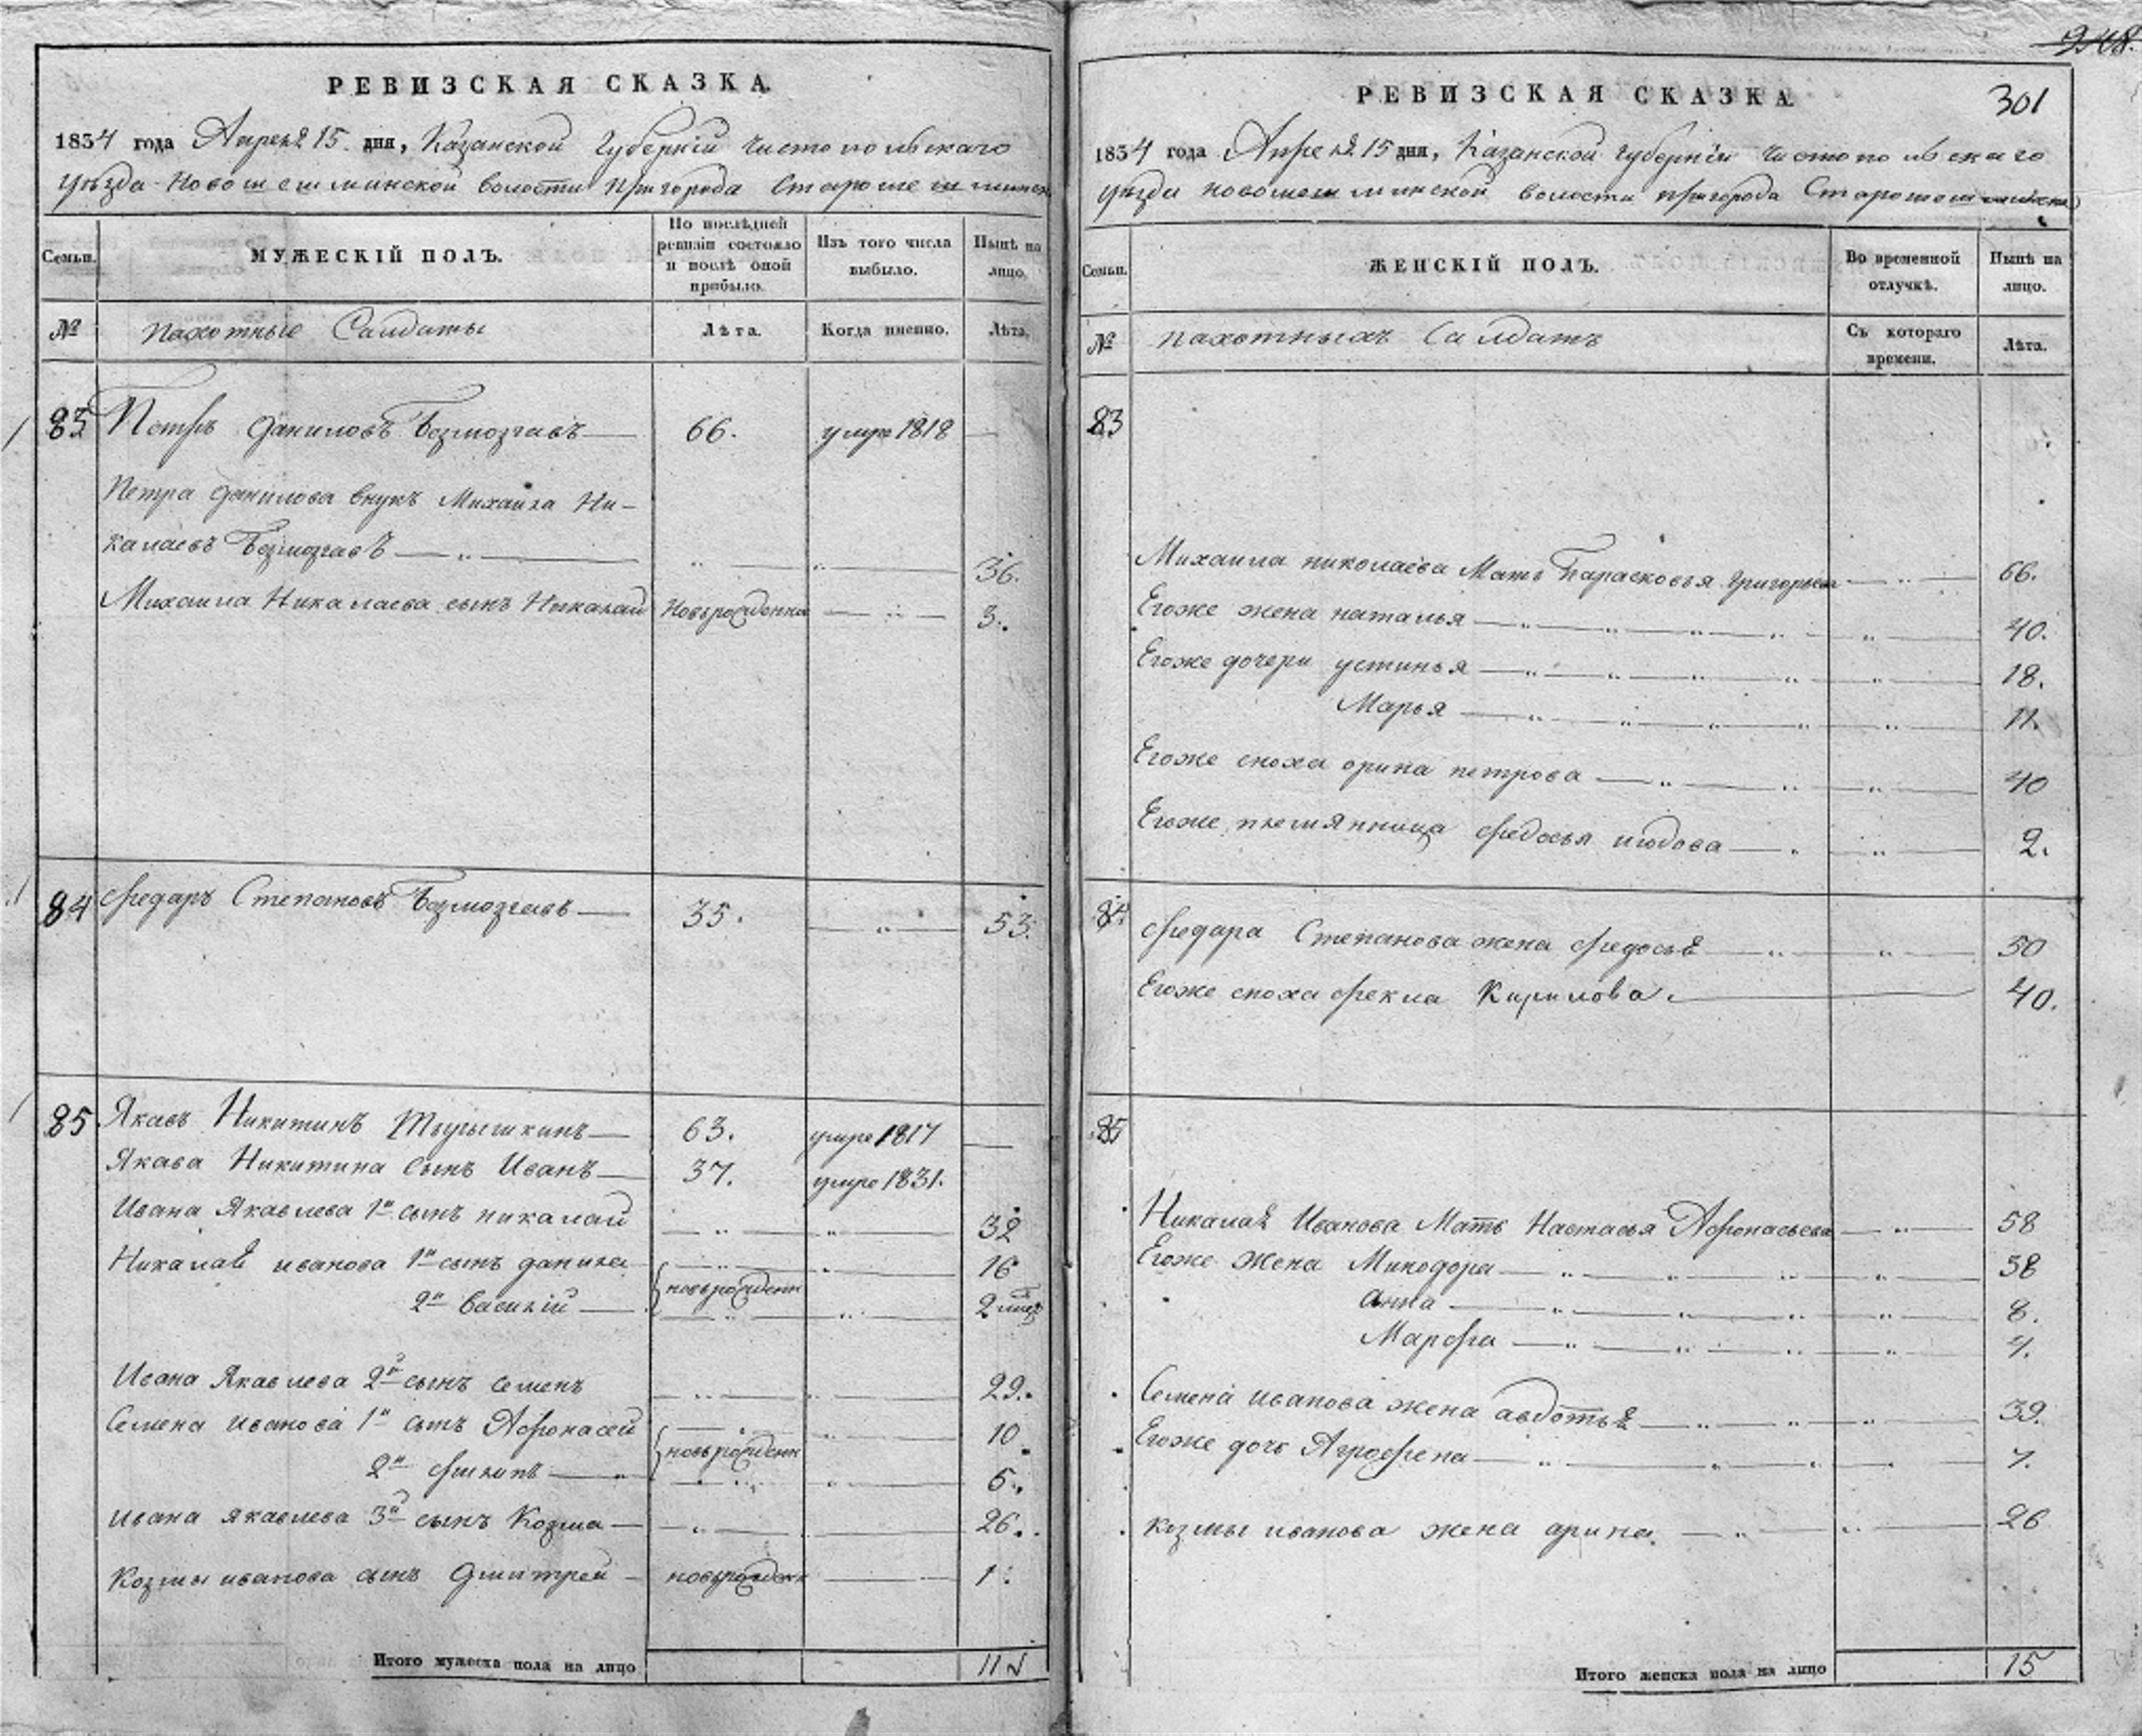 РЕВИЗСКАЯ СКАЗКА.
1834 года Апреля 15. дня, Казанской Губерніи Чистопольскаго
уѣзда Новошешминской волости Пригорода Старошешминска
Семьи.
МУЖЕСКІЙ ПОЛЪ.
По послѣдней ревизіи состояло и послѣ оной прибыло.
Изъ того числа выбыло.
Нынѣ на лицо.
№
Пахотные Салдаты
Лѣта.
Когда именно.
Лѣта.
83 Петръ Даниловъ Безмозгавъ 66. умре 1818
Петра Данилова внукъ Михаила Ни-
калаевъ Безмозгавъ 36.
Михаила Никалаева сынъ Никалай Новорожденна 3.
84 Федаръ Степановъ Безмозгавъ 35. 53.
85 Якавъ Никитинъ 63. умре 1817
Якава Никитина сынъ Иванъ 37. умре 1831.
Ивана Якавлева 1й сынъ никалай 32
Никалая иванова 1й сынъ данила 16
новорожденн
2й Василій 2
Ивана Якавлева 2й сынъ семенъ 29.
Семена иванова 1й сынъ Афонасей 10
новорожденн
2й филипъ 6.
ивана якавлева 3й сынъ Козма 26.
Козмы иванова сынъ Дмитрей новорожденн 1.
Итого мужеска пола на лицо 11
248.
301
РЕВИЗСКАЯ СКАЗКА
1834 года Апреля 15 дня, Казанской Губерніи Чистопольскаго
уѣзда новошешминской волости пригорода Старошешминска
Семьи.
ЖЕНСКІЙ ПОЛЪ.
Во временной отлучкѣ.
Нынѣ на лицо.
№
пахотныхъ Салдатъ
Съ котораго времени.
Лѣта.
83
Михаила николаева Мать Парасковья Григорьева 66.
Егоже жена наталья 40.
Егоже дочери устинья 18.
Марья 11.
Егоже сноха орина петрова 40
Егоже племянница федосья июдова 2.
84
федара Степанова жена федосья 50
Егоже сноха фекла Кирилова. 40.
85
Никалая Иванова Мать Настасья Афонасьева 58
Егоже Жена Минодора 38
анна 8.
Марфа 4.
Семена иванова жена авдотья 39.
Егоже дочь Аграфена 7.
козмы иванова жена арина. 26
Итого женска пола на лицо 15